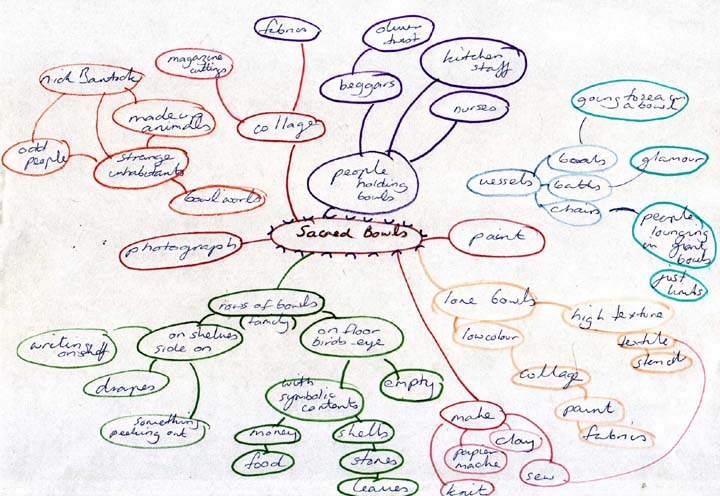 fabrics
oliver
twist
kitchen
staff
magazine
cuttings
nick Bantock
beggars
nurses
going to sea in
a bowl
made up
animals
collage
odd
people
strange
inhabitants
people
holding
bowls
boats
glamour
vessels
baths
chairs
bowl world
people
lounging
in giant
bowls
just
limbs
Sacred Bowls
photograph
paint
rows of bowls
(tardy)
lone bowls
high texture
writing
on shelf
on shelves
side on
on floor
birds-eye
low colour
textile
stencil
drapes
empty
collage
something
peeking out
with
symbolic
contents
make
paint
fabrics
money
shells
clay
papier
mache
food
stones
sew
leaves
knit